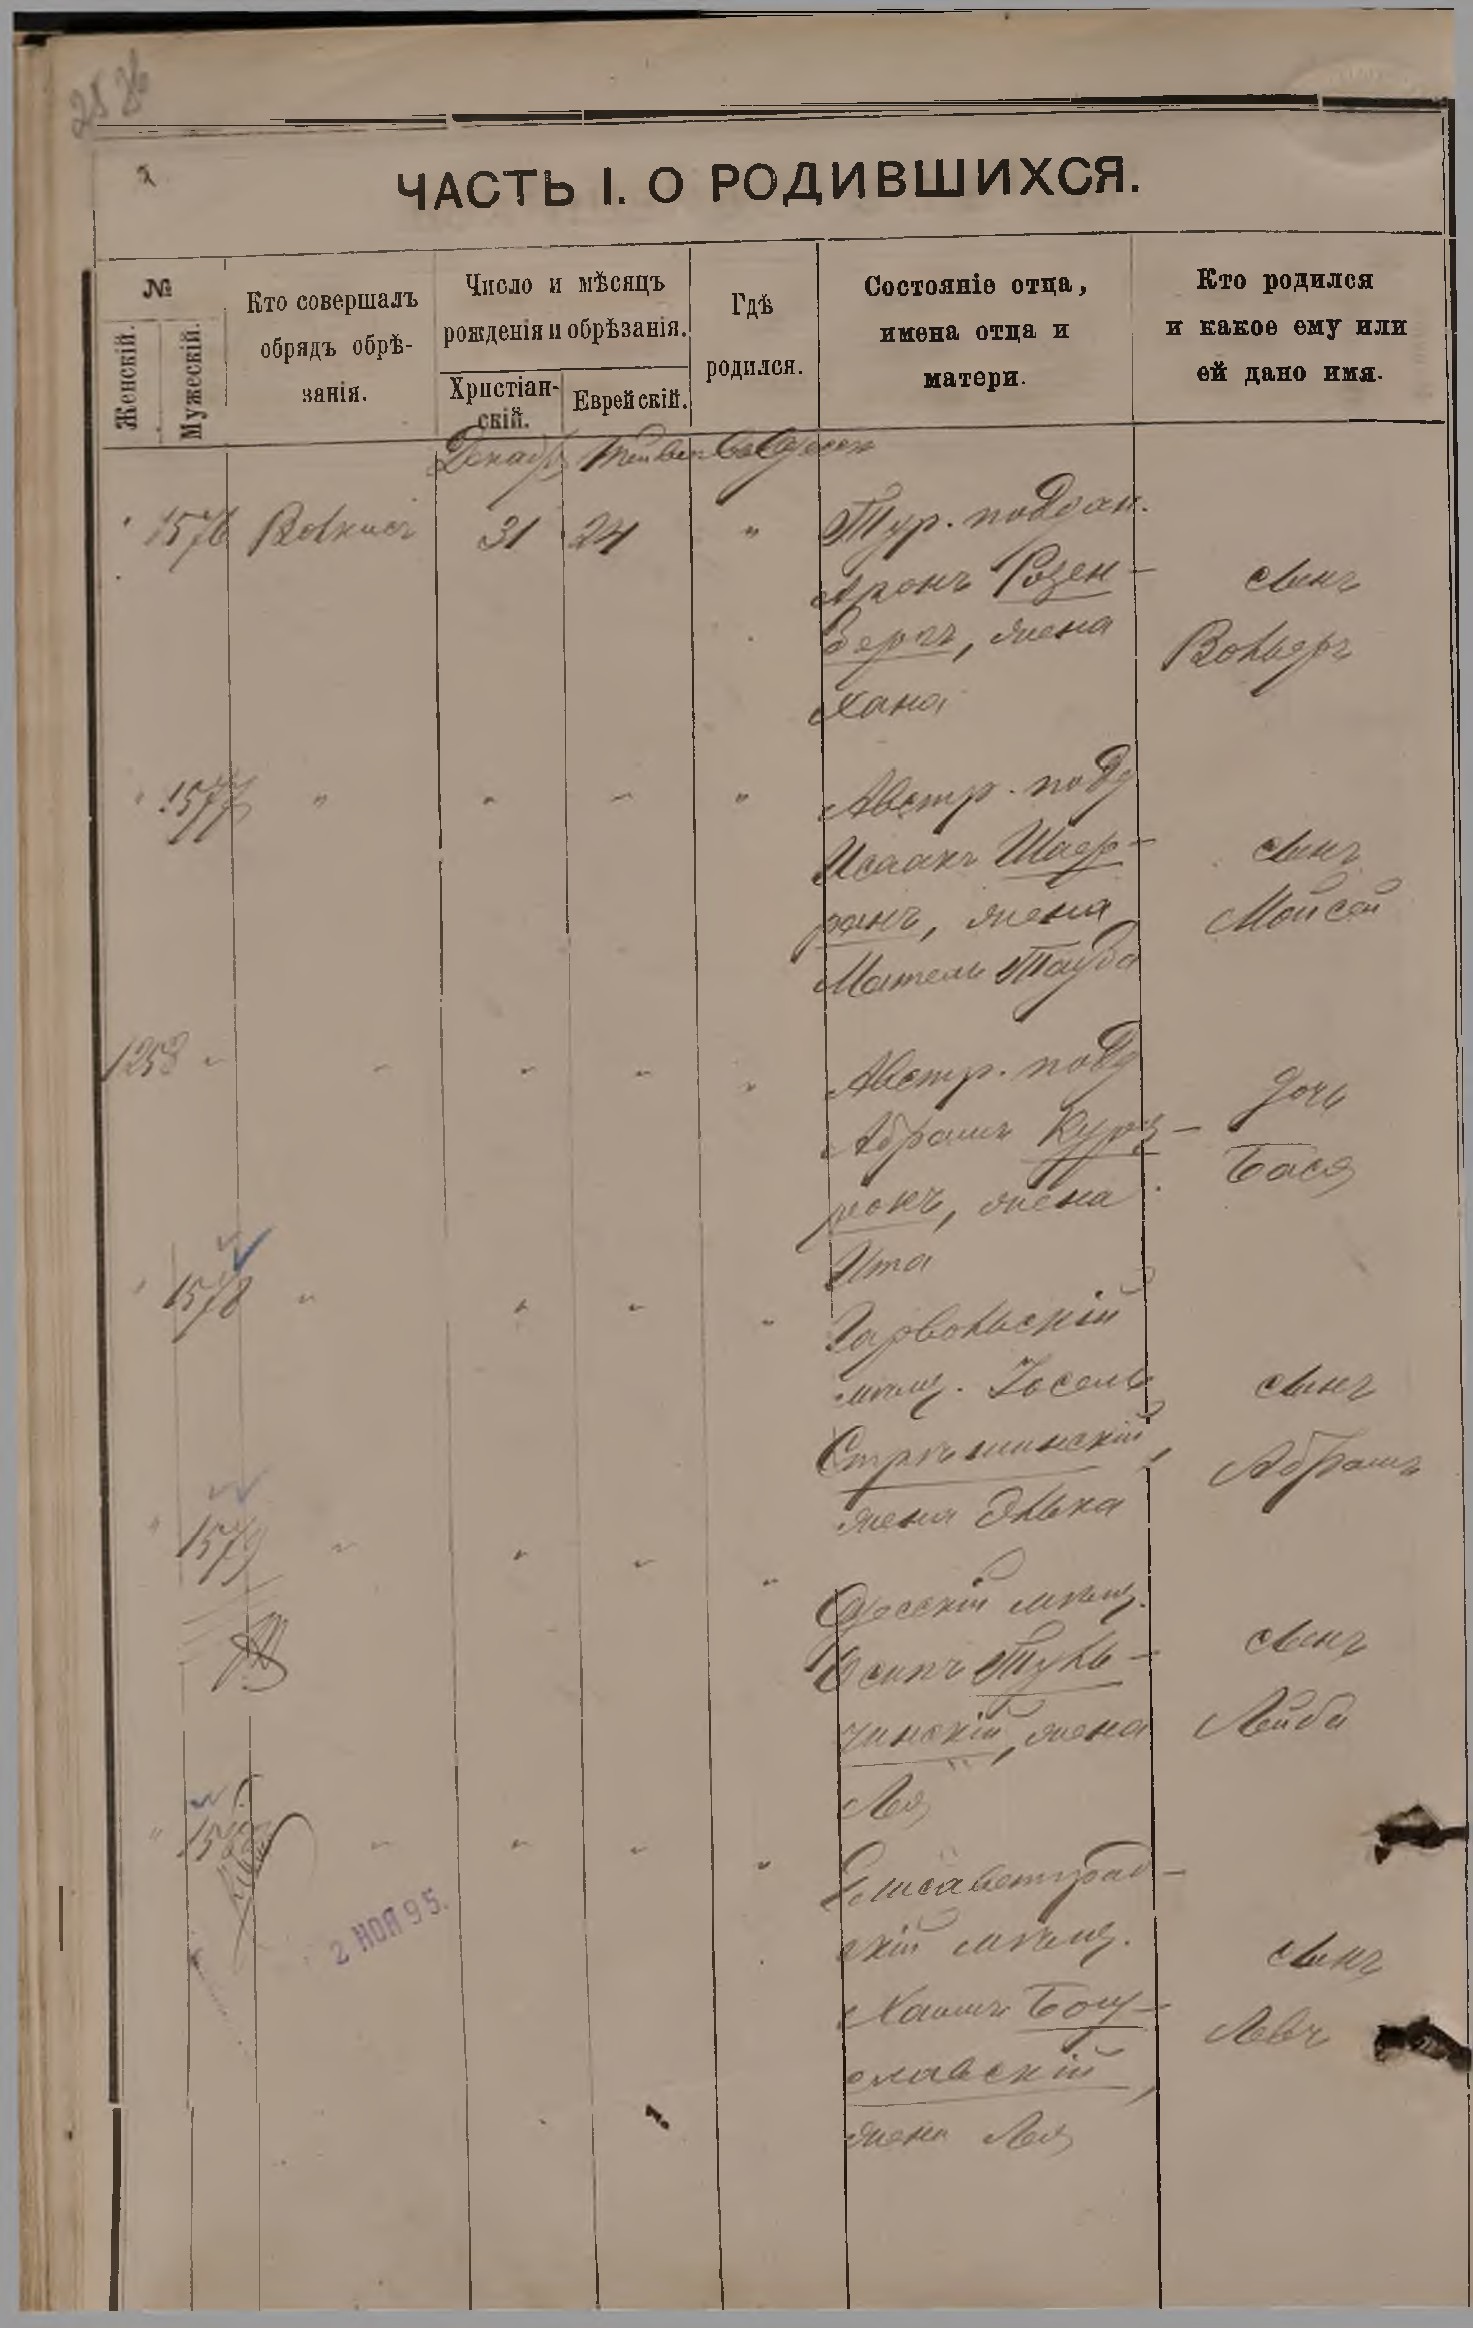 ЧАСТЬ I. О РОДИВШИХСЯ.
№
Женскій.
Мужескій.
Кто совершалъ
обрядъ обрѣ-
занія.
Число и мѣсяцъ
рожденія и обрѣзанія.
Христіан-
скій.
Еврейскій.
Гдѣ
родился.
Состояніе отца,
имена отца и
матери.
Кто родился
и какое ему или
ей дано имя.
Декабр Тейвес Въ Одессѣ
1576 31 24 " Тур. поддан.
Аронъ Розен-
бергъ, жена
Хана
сынъ
Вольфъ
1577 " " " " Австр. подд
Исаакъ
жена
Тауба
сынъ
Мойсей
1258 " " " " " Австр. подд
Абрамъ
жена
Ита
дочь
Бася
1578 " " " "
мѣщ. Іосель
жена Элька
сынъ
Абрамъ
" 1579 " " " " Одесскій мѣщ.
Осипъ Туль-
чинскій, жена
Лея
сынъ
Лейба
" " " " " Елисаветград-
скій мѣщ.
Хаимъ Богу-
славскій,
жена Лея
сынъ
Левъ
2 НОЯ 95.